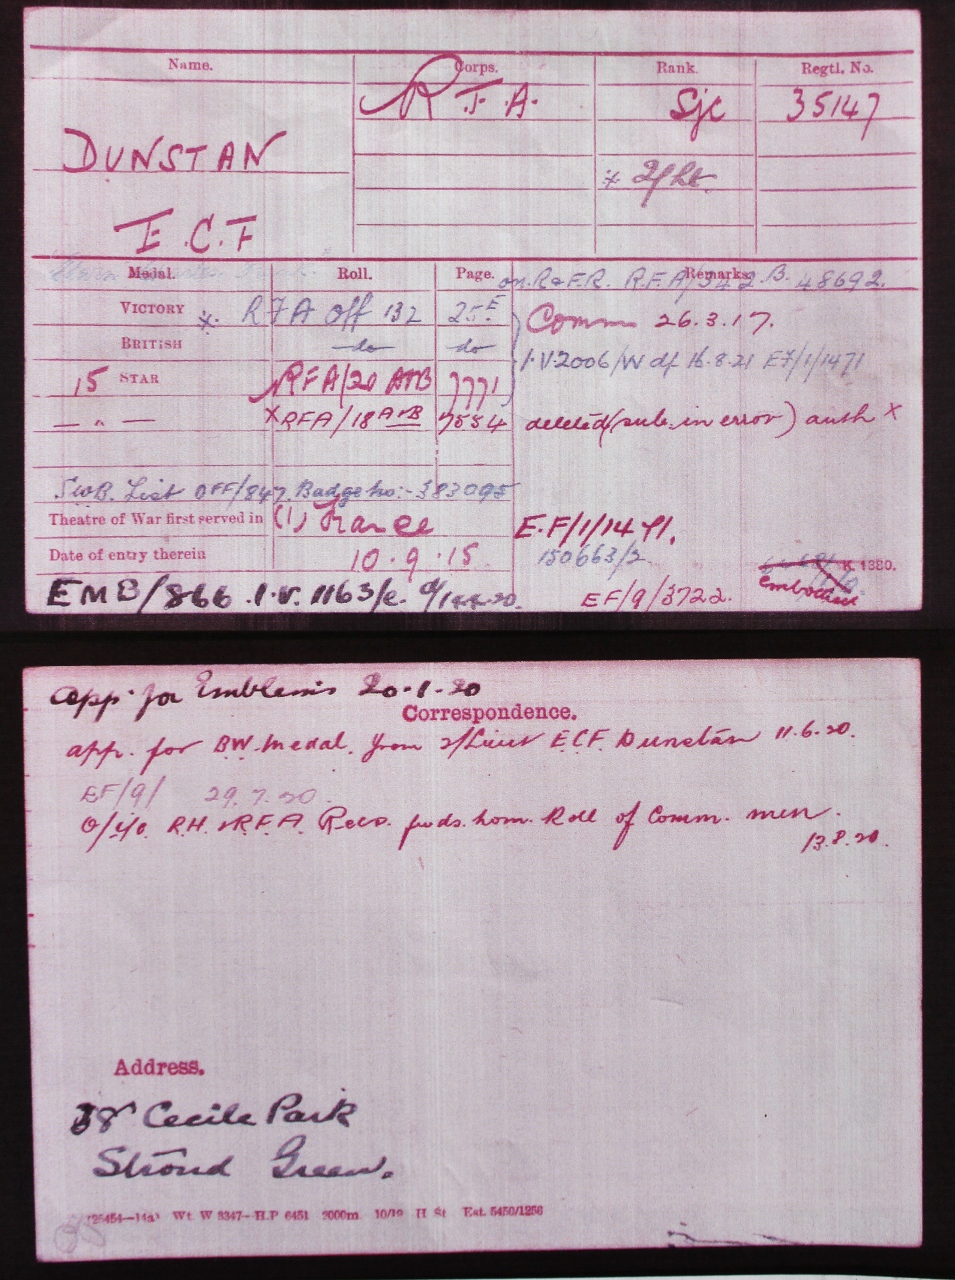 Name. Corps. Rank. Regtl. No.
R.F.A. Sjt 35147
DUNSTAN
* 2/Lt.
E.C.F
Medal. Roll. Page. Remarks.
on R of F.R. R.F.A/342.B. 48692.
VICTORY * RFA Off 132 25E
Comm 26.3.17.
BRITISH do do
I.V2006/W df 16.8.21 EF/1/1471
15 STAR RFA/20 ATB 7771
— " — X RFA/18 AVB 7554 deleted (pub. in error) auth X
SWB. List OFF/847. Badge No:- 383095
Theatre of War first served in (1) France E.F/1/1471.
Date of entry therein 10.9.15. 150663/2.
K. 1380.
EMB/866. I.V. 1163/E. EF/9/3722.
app. for Emblems 20-1-20
Correspondence.
app. for BW. Medal. from 2/Lieut E.C.F. Dunstan 11.6.20.
EF/9/ 29.7.20.
O/i/c R.H. & R.F.A. Recs. fwds. nom. Roll of Comm. men.
13.8.20.
Address.
38 Cecile Park
Stroud Green.
(25454—14a) Wt. W 3347—H.P 6451 2000m. 10/19 H St Est. 5450/1256